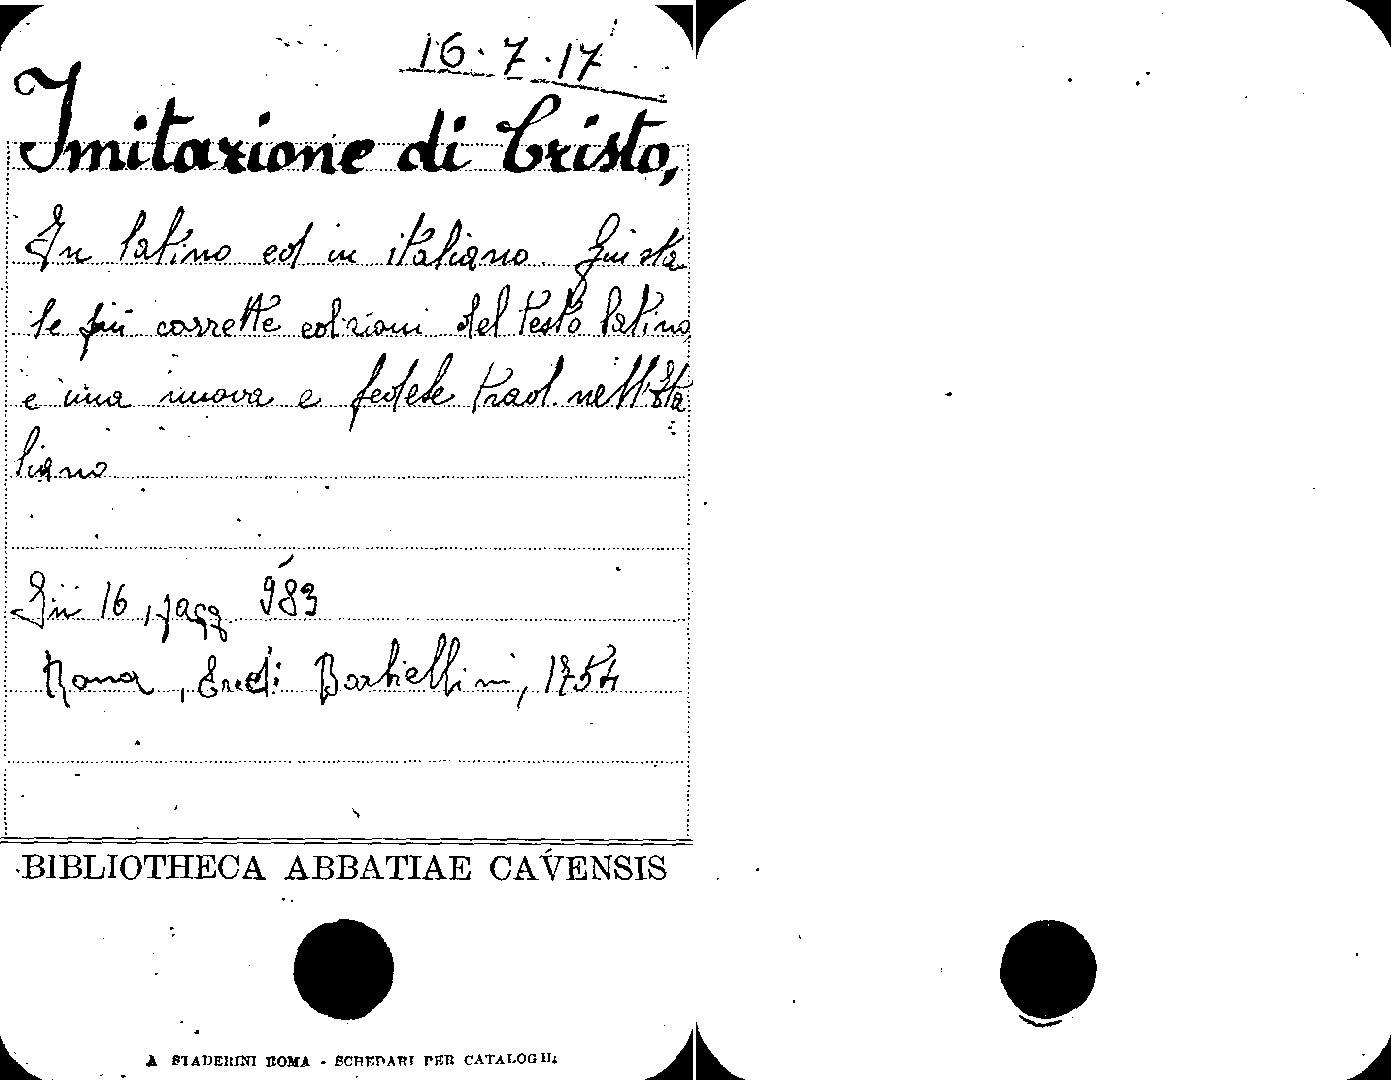 16.7.17
Imitazione di Cristo,
In latino ed in italiano. Giusta
le più corrette edizioni del testo latino
e una nuova e fedele trad. nell'Ita
liano
In 16, pagg. 983
Roma, Eredi Barbiellini, 1754
BIBLIOTHECA ABBATIAE CAVENSIS
A STADERINI ROMA - SCHEDARI PER CATALOGHI